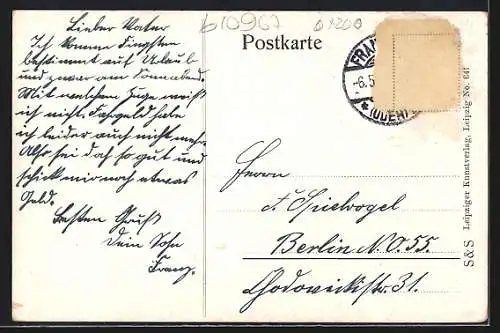 b10967
01200
Postkarte
Lieber Vater
Ich komme Pfingsten
bestimmt auf Urlaub
und zwar am Sonnabend.
Mit welchem Zuge weiß
ich nicht. Fahrgeld habe
ich leider auch nicht mehr.
Also sei doch so gut und
schick mir noch etwas
Geld.
Besten Gruß
Dein Sohn
Franz.
FRAN
-6.5
(ODER)
Herrn
F. Spielvogel
Berlin N.O.55.
Chodowieckistr. 31.
S&S Leipziger Kunstverlag, Leipzig No. 641